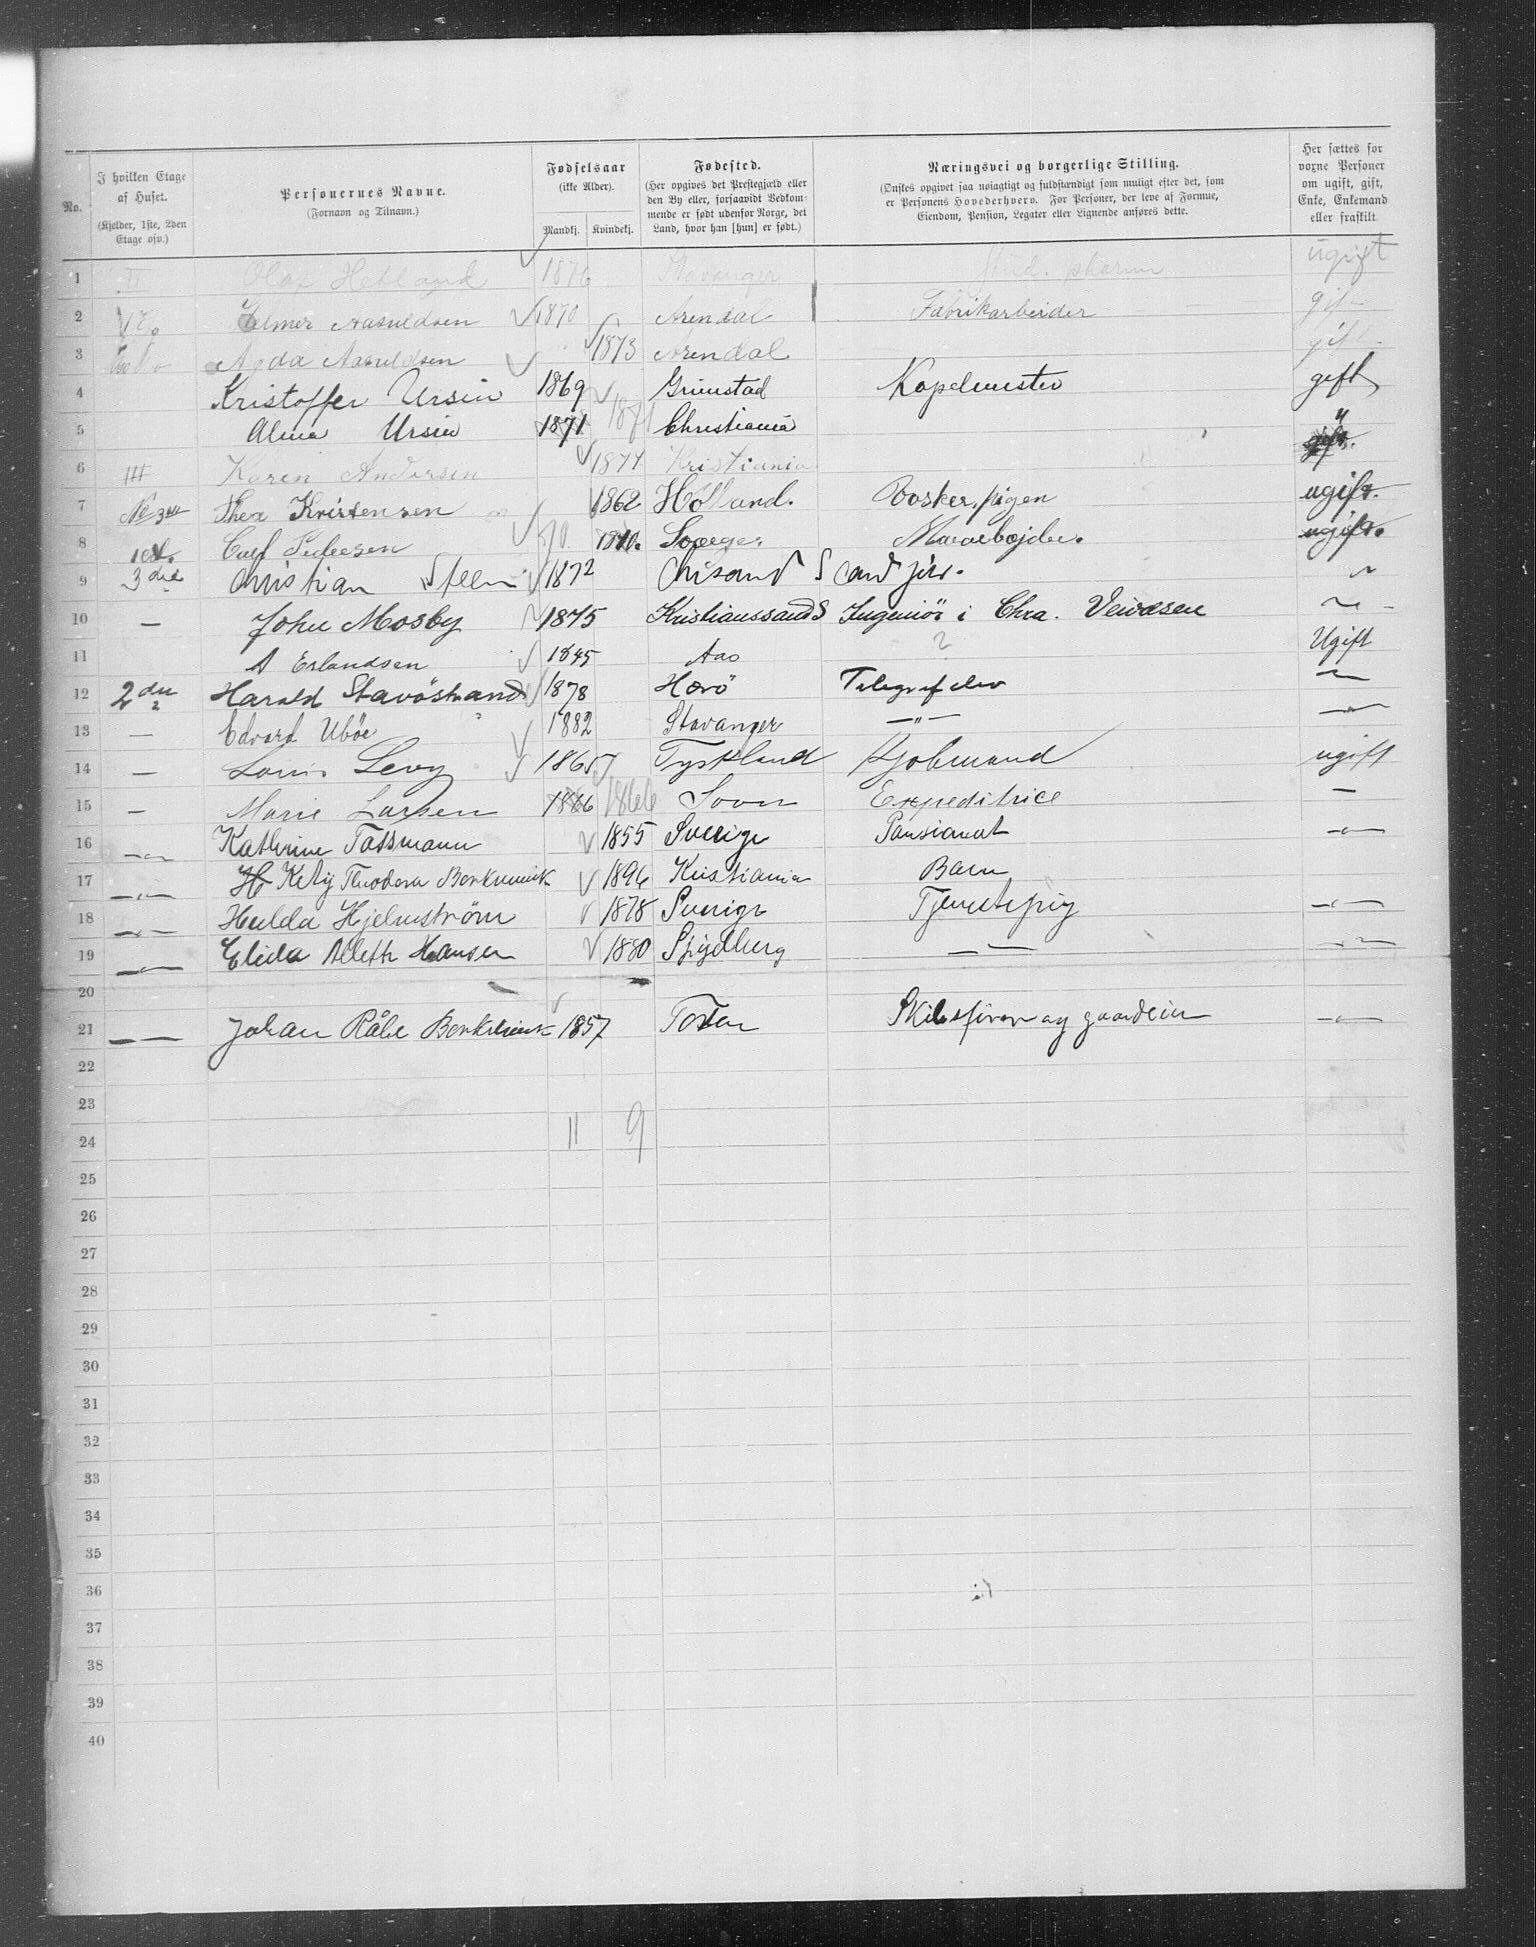 No. I hvilken Etage af Huset. (Kjelder, 1ste, 2den Etage osv.) Personernes Navne. (Fornavn og Tilnavn.) Fødselsaar (ikke Alder). Mandkj. Kvindekj. Fødested. (Her opgives det Prestegjæld eller den By eller, forsaavidt Vedkommende er født udenfor Norge, det Land, hvor han [hun] er født.) Næringsvei og borgerlige Stilling. (Ønskes opgivet saa nøiagtigt og fuldstændigt som muligt efter det, som er Personens Hovederhverv. For Personer, der leve af Formue, Eiendom, Pension, Legater eller Lignende anføres dette. Her sættes for voxne Personer om ugift, gift, Enke, Enkemand eller fraskilt
1 II Olaf Hetland 1876 Stavanger Stud. pharm ugift
2 Elmer Aasuldsen 1870 Arendal Fabrikarbeider gif
3 Agda Aasuldsen 1873 Arendal gift
4 Kristoffer Ursin 1869 Grimstad Kapelmester gift
5 Alma Ursin 1871 1871 Christiania "
6 III Karen Andersen 1874 Kristiania
7 Thea Kristensen 1862 Holland. Vasker pigen ugift.
8 1ste. Carl Pedersen 70 1870. Murarbejder. ugift.
9 3die Christian Steen 1872 Chrsand S Cand jur. ~
10 — John Mosby 1875 Kristianssand S Ingeniør i Chra. Veivæsen ~
11 A Erlandsen 1845 Aas ? Ugift
12 2den Harald Stavöstrand 1878 Herö Telegrafelev ~
13 — Edvard Uböe 1882 Stavanger —"— —"—
14 — Louis Levy 1865 Tyskland Kjobmand ugift
15 — Marie Larsen 1866 1866 Expeditrice —
16 —"— Kathrine Tassmann 1855 Sverige Pansianat —"—
17 —"— Kety Theodora 1896 Kristiania Barn
18 —"— Hulda Hjelmstrøm 1878 Sverige Tjenstepig —"—
19 —"— Elida Aleth Hansen 1880 —"— —"—
20
21 —"— Johan Råbe 1857 Toten —"—
22
23
24 11 9
25
26
27
28
29
30
31
32
33
34
35
36
37
38
39
40